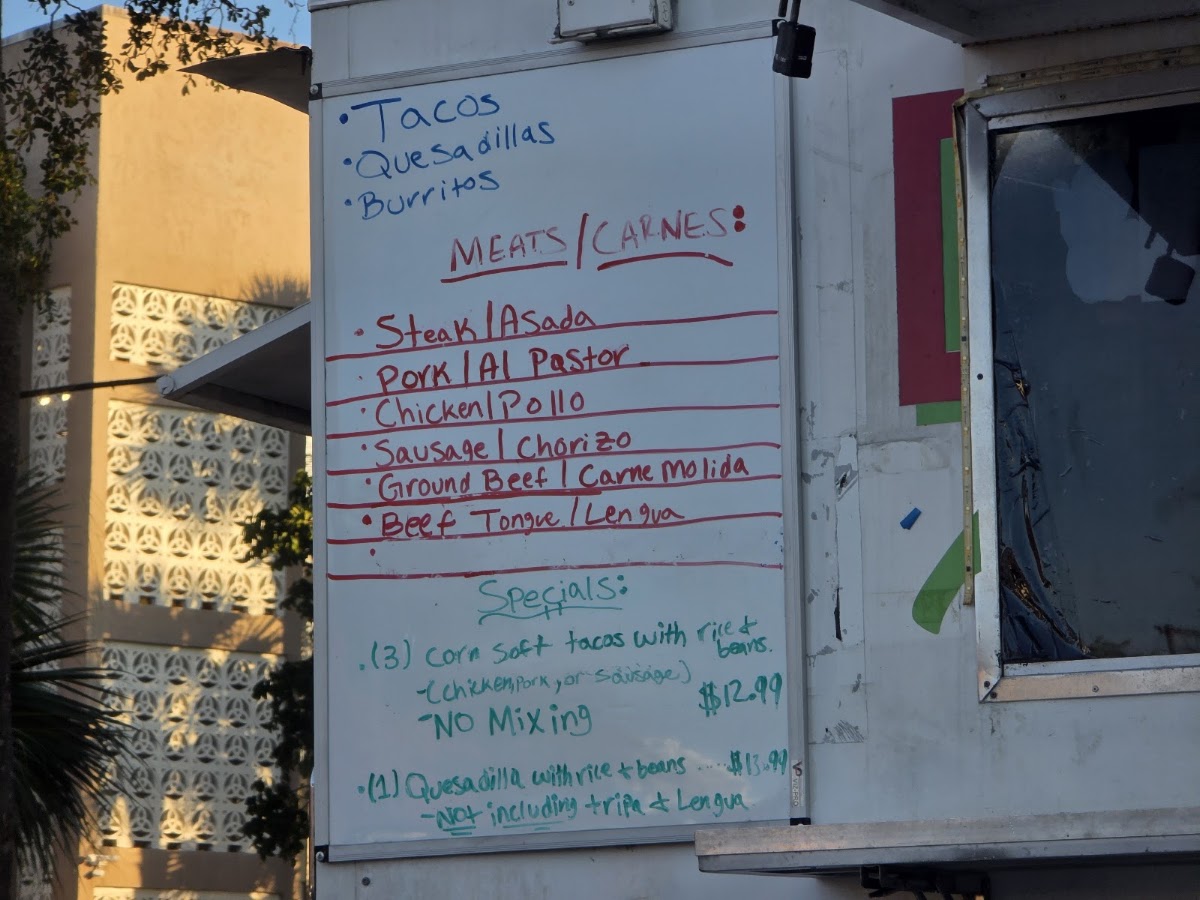 • Tacos
• Quesadillas
• Burritos
MEATS/CARNES:
• Steak/Asada
• Pork/Al Pastor
• Chicken/Pollo
• Sausage/Chorizo
• Ground Beef/Carne Molida
• Beef Tongue/Lengua
•
Specials:
. (3) corn soft tacos with rice &
beans.
-(chicken, pork, or sausage)
$12.99
-NO Mixing
• (1) Quesadilla with rice & beans ..... $13.99
-Not including tripa & Lengua